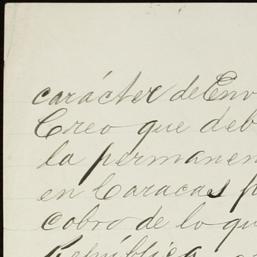 carácter de Env
Creo que deb
la permanen
en Caracas p
cobro de lo qu
República